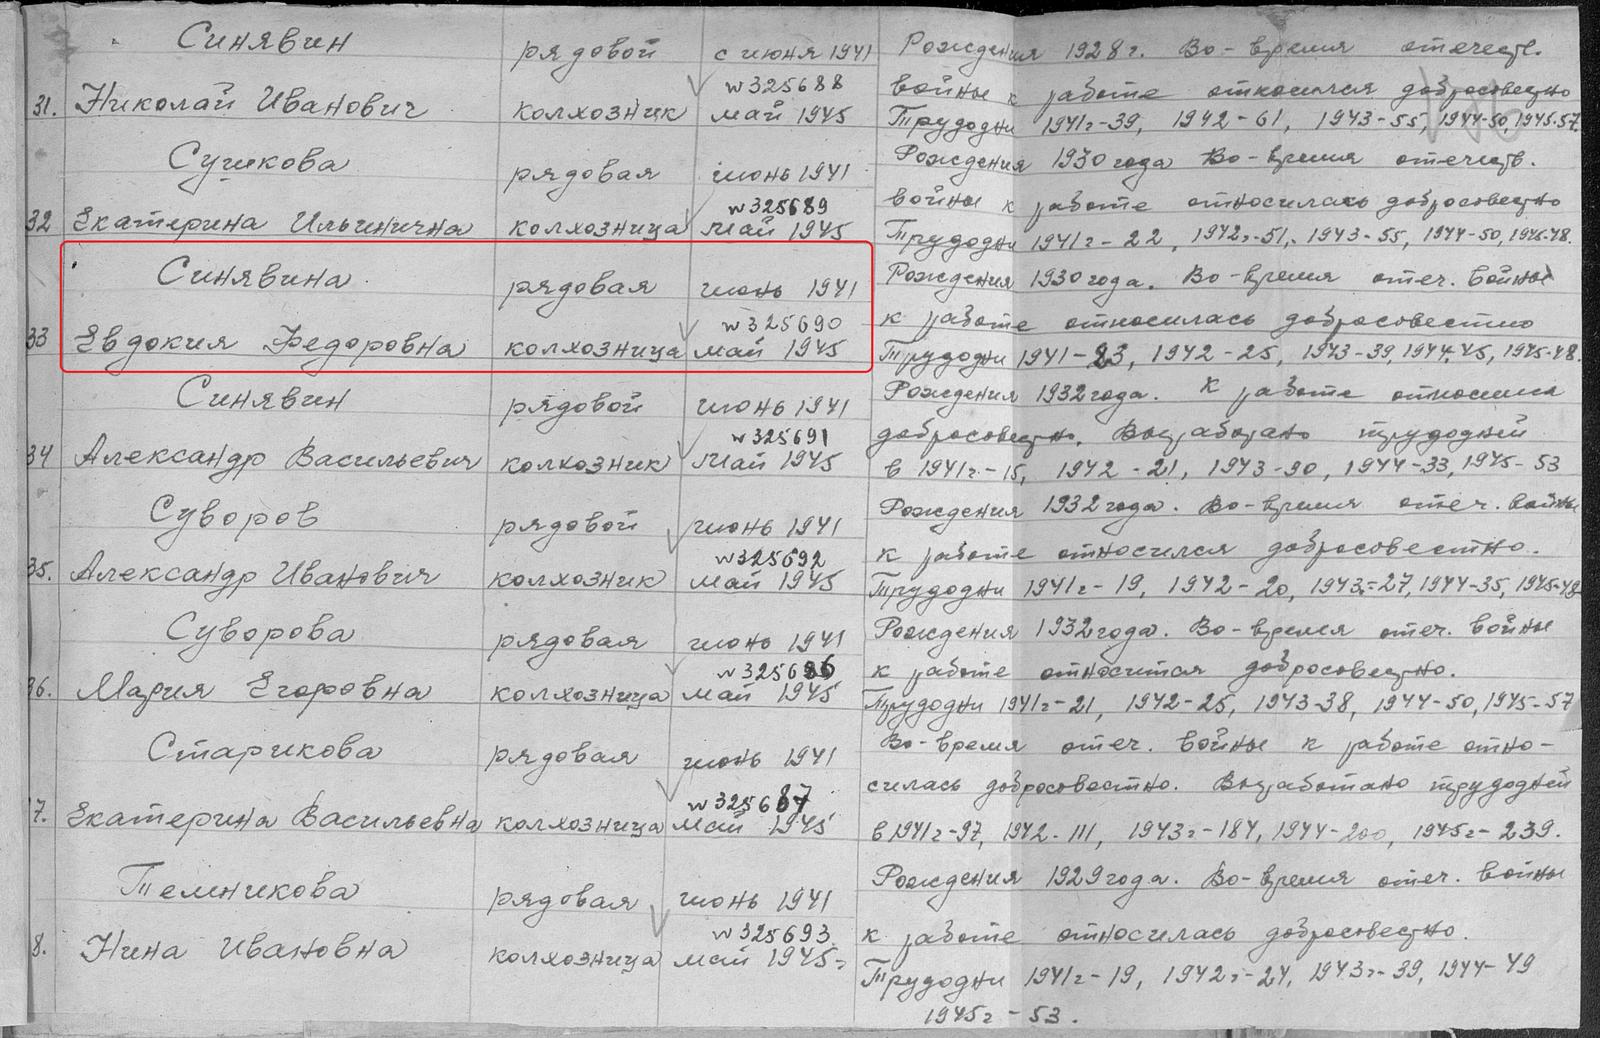 Синявин рядовой с июня 1941 Рождения 1928 г. Во-время отечеств.
w325688 войны к работе относился добросовестно
31. Николай Иванович колхозник май 1945 Трудодни 1941г-39, 1942-61, 1943-55, 1944-50, 1945-57.
Сушкова рядовая июнь 1941 Рождения 1930 года Во-время отечеств.
w325689 войны к работе относилась добросовестно
32 Екатерина Ильинична колхозница май 1945 Трудодни 1941г-22, 1942г-51, 1943-55, 1944-50, 1945-48.
Синявина рядовая июнь 1941 Рождения 1930 года. Во-время отеч. войны
w325690 к работе относилась добросовестно
33 Евдокия Федоровна колхозница май 1945 Трудодни 1941-23, 1942-25, 1943-39, 1944-45, 1945-48.
Синявин рядовой июнь 1941 Рождения 1932 года. К работе относился
w325691 добросовестно. Выработано трудодней
34 Александр Васильевич колхозник май 1945 в 1941г-15, 1942-21, 1943-90, 1944-33, 1945-53
Суворов рядовой июнь 1941 Рождения 1932 года. Во-время отеч. войны
w325692 к работе относился добросовестно.
35. Александр Иванович колхозник май 1945 Трудодни 1941г-19, 1942-20, 1943-27, 1944-35, 1945-48
Суворова рядовая июнь 1941 Рождения 1932 года. Во-время отеч. войны
w325686 к работе относится добросовестно.
36. Мария Егоровна колхозница май 1945 Трудодни 1941г-21, 1942-25, 1943-38, 1944-50, 1945-57
Старикова рядовая июнь 1941 Во-время отеч. войны к работе отно-
w325687 силась добросовестно. Выработано трудодней
7. Екатерина Васильевна колхозница май 1945 в 1941г-97, 1942-111, 1943г-184, 1944-200, 1945г-239.
Темникова рядовая июнь 1941 Рождения 1929 года. Во-время отеч. войны
w325693 к работе относилась добросовестно.
8. Нина Ивановна колхозница май 1945г Трудодни 1941г-19, 1942г-24, 1943г-39, 1944-49
1945г-53.